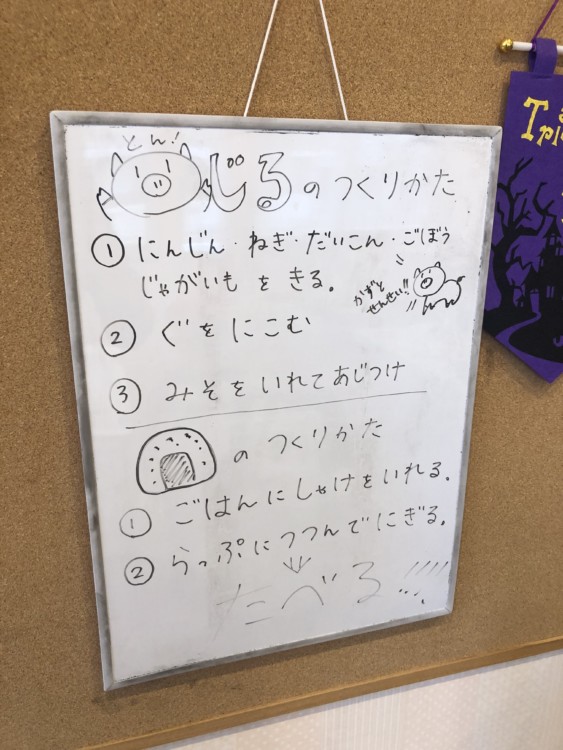 とん！
じるのつくりかた
① にんじん・ねぎ・だいこん・ごぼう
じゃがいもをきる。
かずと
せんせい!!
② ぐをにこむ
③ みそをいれてあじつけ
のつくりかた
① ごはんにしゃけをいれる。
② らっぷにつつんでにぎる。
↓
たべる!!!!